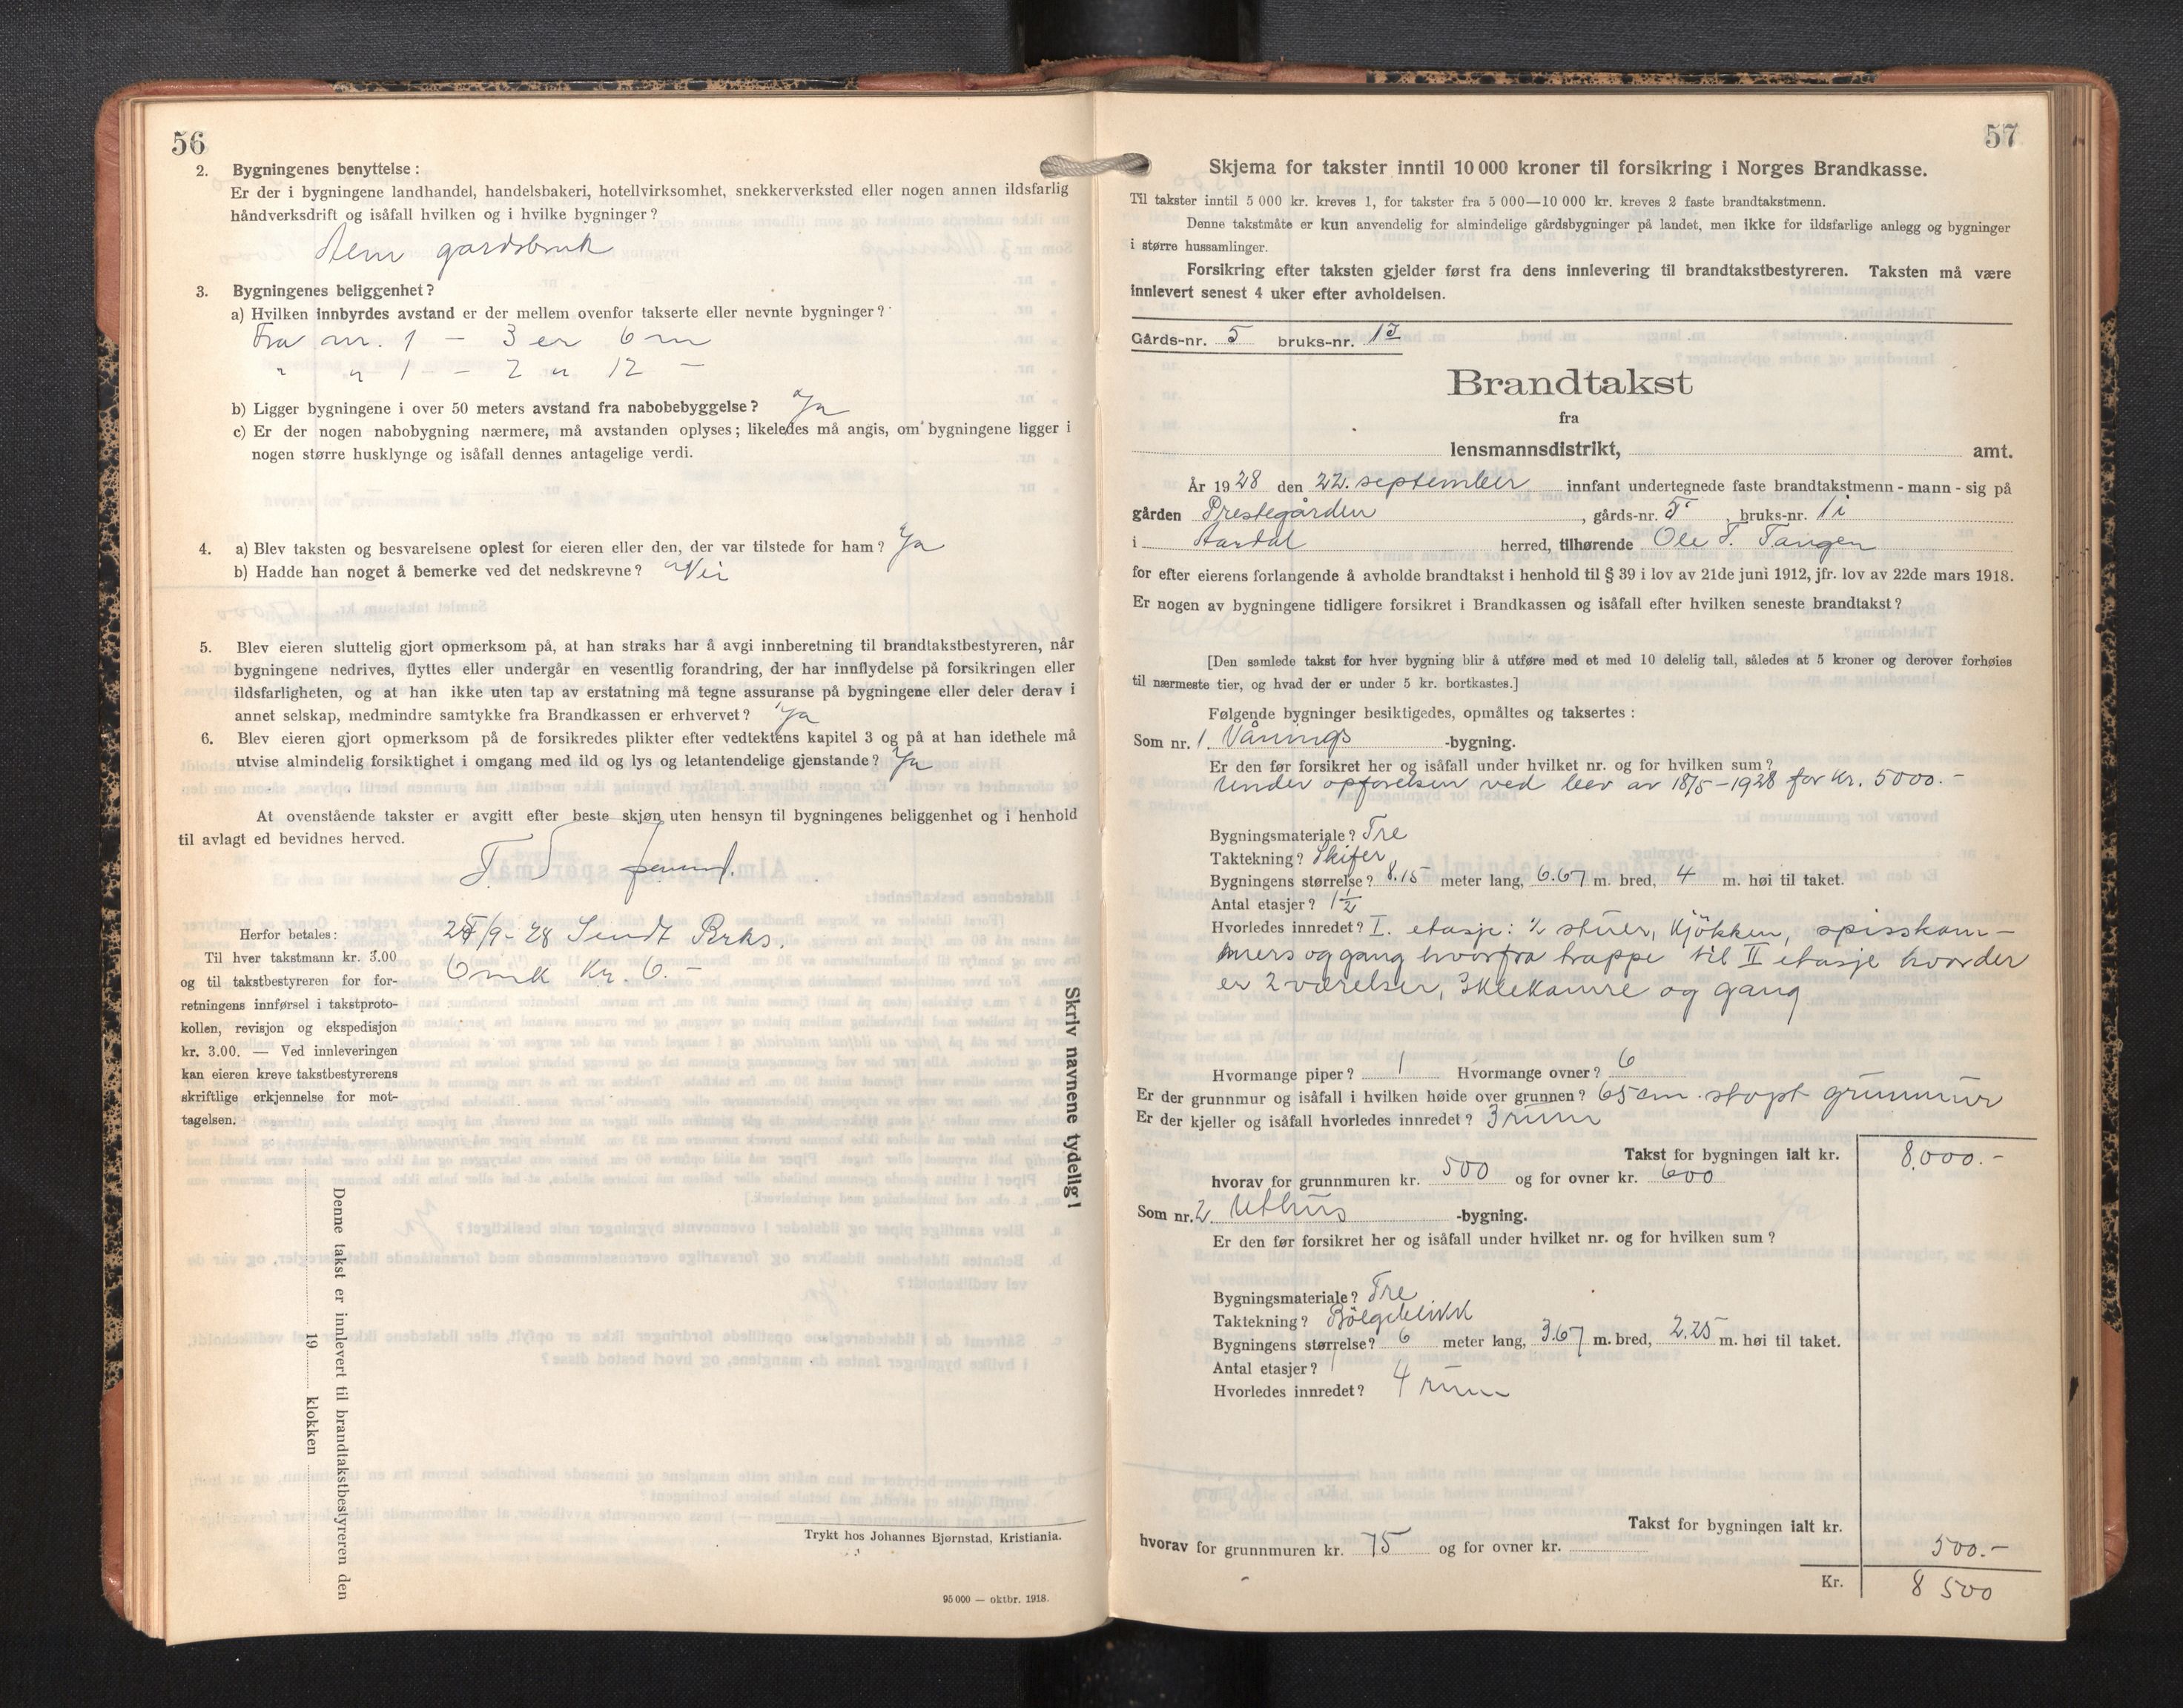 56
2. Bygningenes benyttelse:
Er der i bygningene landhandel, handelsbakeri, hotellvirksomhet, snekkerverksted eller nogen annen ildsfarlig
håndverksdrift og isåfall hvilken og i hvilke bygninger?
gardsbruk
3. Bygningenes beliggenhet?
a) Hvilken innbyrdes avstand er der mellem ovenfor takserte eller nevnte bygninger?
Fra nr. 1 - 3 er 6 m
" " 1 - 2 " 12 -
b) Ligger bygningene i over 50 meters avstand fra nabobebyggelse? Ja
c) Er der nogen nabobygning nærmere, må avstanden oplyses; likeledes må angis, om bygningene ligger i
nogen større husklynge og isåfall dennes antagelige verdi.
4. a) Blev taksten og besvarelsene oplest for eieren eller den, der var tilstede for ham? Ja
b) Hadde han noget å bemerke ved det nedskrevne? Nei
5. Blev eieren sluttelig gjort opmerksom på, at han straks har å avgi innberetning til brandtakstbestyreren, når
bygningene nedrives, flyttes eller undergår en vesentlig forandring, der har innflydelse på forsikringen eller
ildsfarligheten, og at han ikke uten tap av erstatning må tegne assuranse på bygningene eller deler derav i
annet selskap, medmindre samtykke fra Brandkassen er erhvervet? Ja
6. Blev eieren gjort opmerksom på de forsikredes plikter efter vedtektens kapitel 3 og på at han idethele må
utvise almindelig forsiktighet i omgang med ild og lys og letantendelige gjenstande? Ja
At ovenstående takster er avgitt efter beste skjøn uten hensyn til bygningenes beliggenhet og i henhold
til avlagt ed bevidnes herved.
Herfor betales:
Til hver takstmann kr. 3.00
og til takstbestyreren for for-
retningens innførsel i takstproto-
kollen, revisjon og ekspedisjon
kr. 3.00. — Ved innleveringen
kan eieren kreve takstbestyrerens
skriftlige erkjennelse for mot-
tagelsen.
/9-28 Sendt
Kr. 6.-
Skriv navnene tydelig!
Denne takst er innlevert til brandtakstbestyreren den
19 klokken
Trykt hos Johannes Bjørnstad, Kristiania.
95 000 — oktbr. 1918.
57
Skjema for takster inntil 10 000 kroner til forsikring i Norges Brandkasse.
Til takster inntil 5 000 kr. kreves 1, for takster fra 5 000—10 000 kr. kreves 2 faste brandtakstmenn.
Denne takstmåte er kun anvendelig for almindelige gårdsbygninger på landet, men ikke for ildsfarlige anlegg og bygninger
i større hussamlinger.
Forsikring efter taksten gjelder først fra dens innlevering til brandtakstbestyreren. Taksten må være
innlevert senest 4 uker efter avholdelsen.
Gårds-nr. 5 bruks-nr.
Brandtakst
fra
lensmannsdistrikt, amt.
År 1928 den 22. september innfant undertegnede faste brandtakstmenn - mann - sig på
gården Prestegården, gårds-nr. 5, bruks-nr. 1i
i Aardal herred, tilhørende Ole T. Tangen
for efter eierens forlangende å avholde brandtakst i henhold til § 39 i lov av 21de juni 1912, jfr. lov av 22de mars 1918.
Er nogen av bygningene tidligere forsikret i Brandkassen og isåfall efter hvilken seneste brandtakst?
[Den samlede takst for hver bygning blir å utføre med et med 10 delelig tall, således at 5 kroner og derover forhøies
til nærmeste tier, og hvad der er under 5 kr. bortkastes.]
Følgende bygninger besiktigedes, opmåltes og taksertes:
Som nr. 1. Vånings -bygning.
Er den før forsikret her og isåfall under hvilket nr. og for hvilken sum?
Under opførelsen ved brev av 18/5-1928 for kr. 5000.-
Bygningsmateriale? Tre
Taktekning? Skifer
Bygningens størrelse? 8.15 meter lang, 6.67 m. bred, 4 m. høi til taket.
Antal etasjer? 1½
Hvorledes innredet? I. etasje: 2 stuer, kjökken, spisskam-
mers og gang hvorfra trappe til II etasje hvor der
er 2 værelser, 3 klekamre og gang
Hvormange piper? 1 Hvormange ovner? 6
Er der grunnmur og isåfall i hvilken høide over grunnen? 65 cm. stöpt grunmur
Er der kjeller og isåfall hvorledes innredet? 3 rum
Takst for bygningen ialt kr. 8.000.-
hvorav for grunnmuren kr. 500 og for ovner kr. 600
Som nr. 2 Uthus -bygning.
Er den før forsikret her og isåfall under hvilket nr. og for hvilken sum?
Bygningsmateriale? Tre
Taktekning? Bölgeblikk
Bygningens størrelse? 6 meter lang, 3.67 m. bred, 2.25 m. høi til taket.
Antal etasjer? 1
Hvorledes innredet? 4 rum
Takst for bygningen ialt kr.
hvorav for grunnmuren kr. 75 og for ovner kr. 500.-
Kr. 8 500